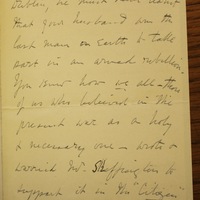 Dublin, he must have learnt
that your husband & I am the
last man on Earth to take
part in an armed rebellion.
You know how we all – those
of us who believed in the
present war as a holy
& necessary one – wrote &
Mr. Skeffington to
support it in the "Citizen"